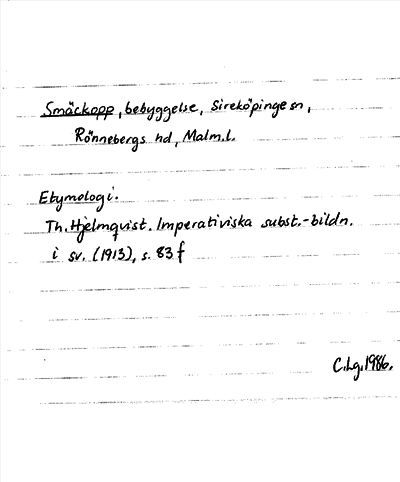 Smäckopp, bebyggelse, Sireköpinge sn,
Rönnebergs hd, Malm.l.
Etymologi.
Th. Hjelmqvist. Imperativiska subst.-bildn.
i sv. (1913), s. 83 f
C.Lg.1986.